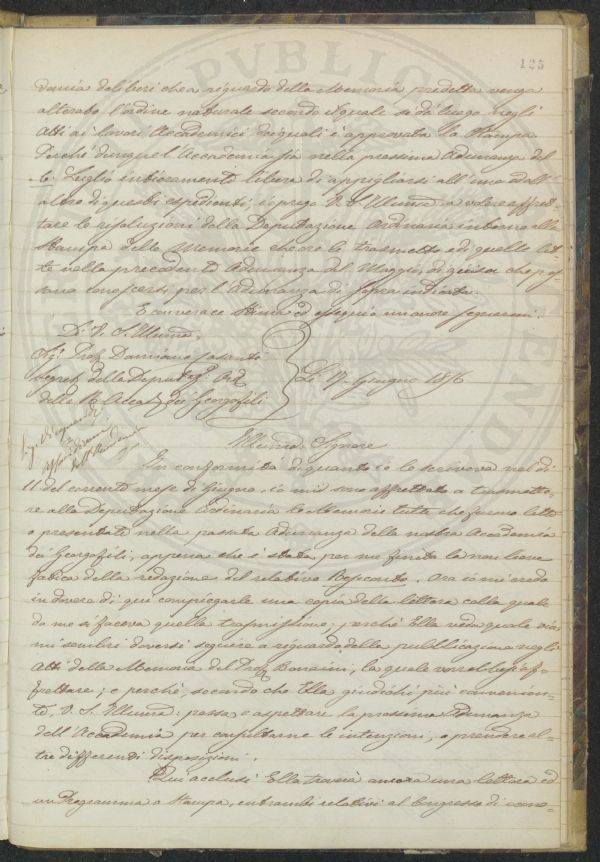 125
demia deliberi che a riguardo della Memoria predetta venga
alterato l'ordine naturale secondo il quale si dà luogo negli
Atti ai lavori Accademici dei quali è approvata la Stampa.
Perché dunque l'Accademia sia nella prossima Adunanza del
6 Luglio intieramente libera di appigliarsi all'uno o all'
altro di questi espedienti, io prego V. S. Illma a voler affret-
tare le risoluzioni della Deputazione Ordinaria intorno alla
Stampa delle Memorie che ora le trasmetto e di quelle let-
te nella precedente Adunanza del Maggio, di guisa che pos-
sano conoscersi per l'Adunanza di sopra indicata.
E con verace stima ed ossequio mi onoro segnarmi
Di V. S. Illma
Sig. Prof. Damiano
Segret. della Deputaz. Ord.
della R. Accad. dei Georgofili
Lì 17 Giugno 1876
Sig.
dell'Accademia
Illmo Signore
In conformità di quanto io le scriveva nel dì
11 del corrente mese di Giugno, io mi sono affrettato a trasmette-
re alla Deputazione ordinaria le Memorie tutte che furono lette
o presentate nella passata Adunanza della nostra Accademia
dei Georgofili, appena che è stata per me finita la non lieve
fatica della redazione del relativo Resoconto. Ora io mi credo
in dovere di qui compiegarle una copia della lettera colla quale
da me si faceva quella trasmissione; perché Ella veda quale via
mi sembri doversi seguire a riguardo della pubblicazione negli
Atti della Memoria del Prof. Bonaini, la quale vorrebbesi af-
frettare; e perché, secondo che Ella giudichi più convenien-
te, V. S. Illma possa o aspettare la prossima Adunanza
dell'Accademia per consultarne le intenzioni, o prendere al-
tre differenti disposizioni.
Qui acclusi Ella troverà ancora una lettera ed
un Programma a Stampa, entrambi relativi al Congresso di econo-